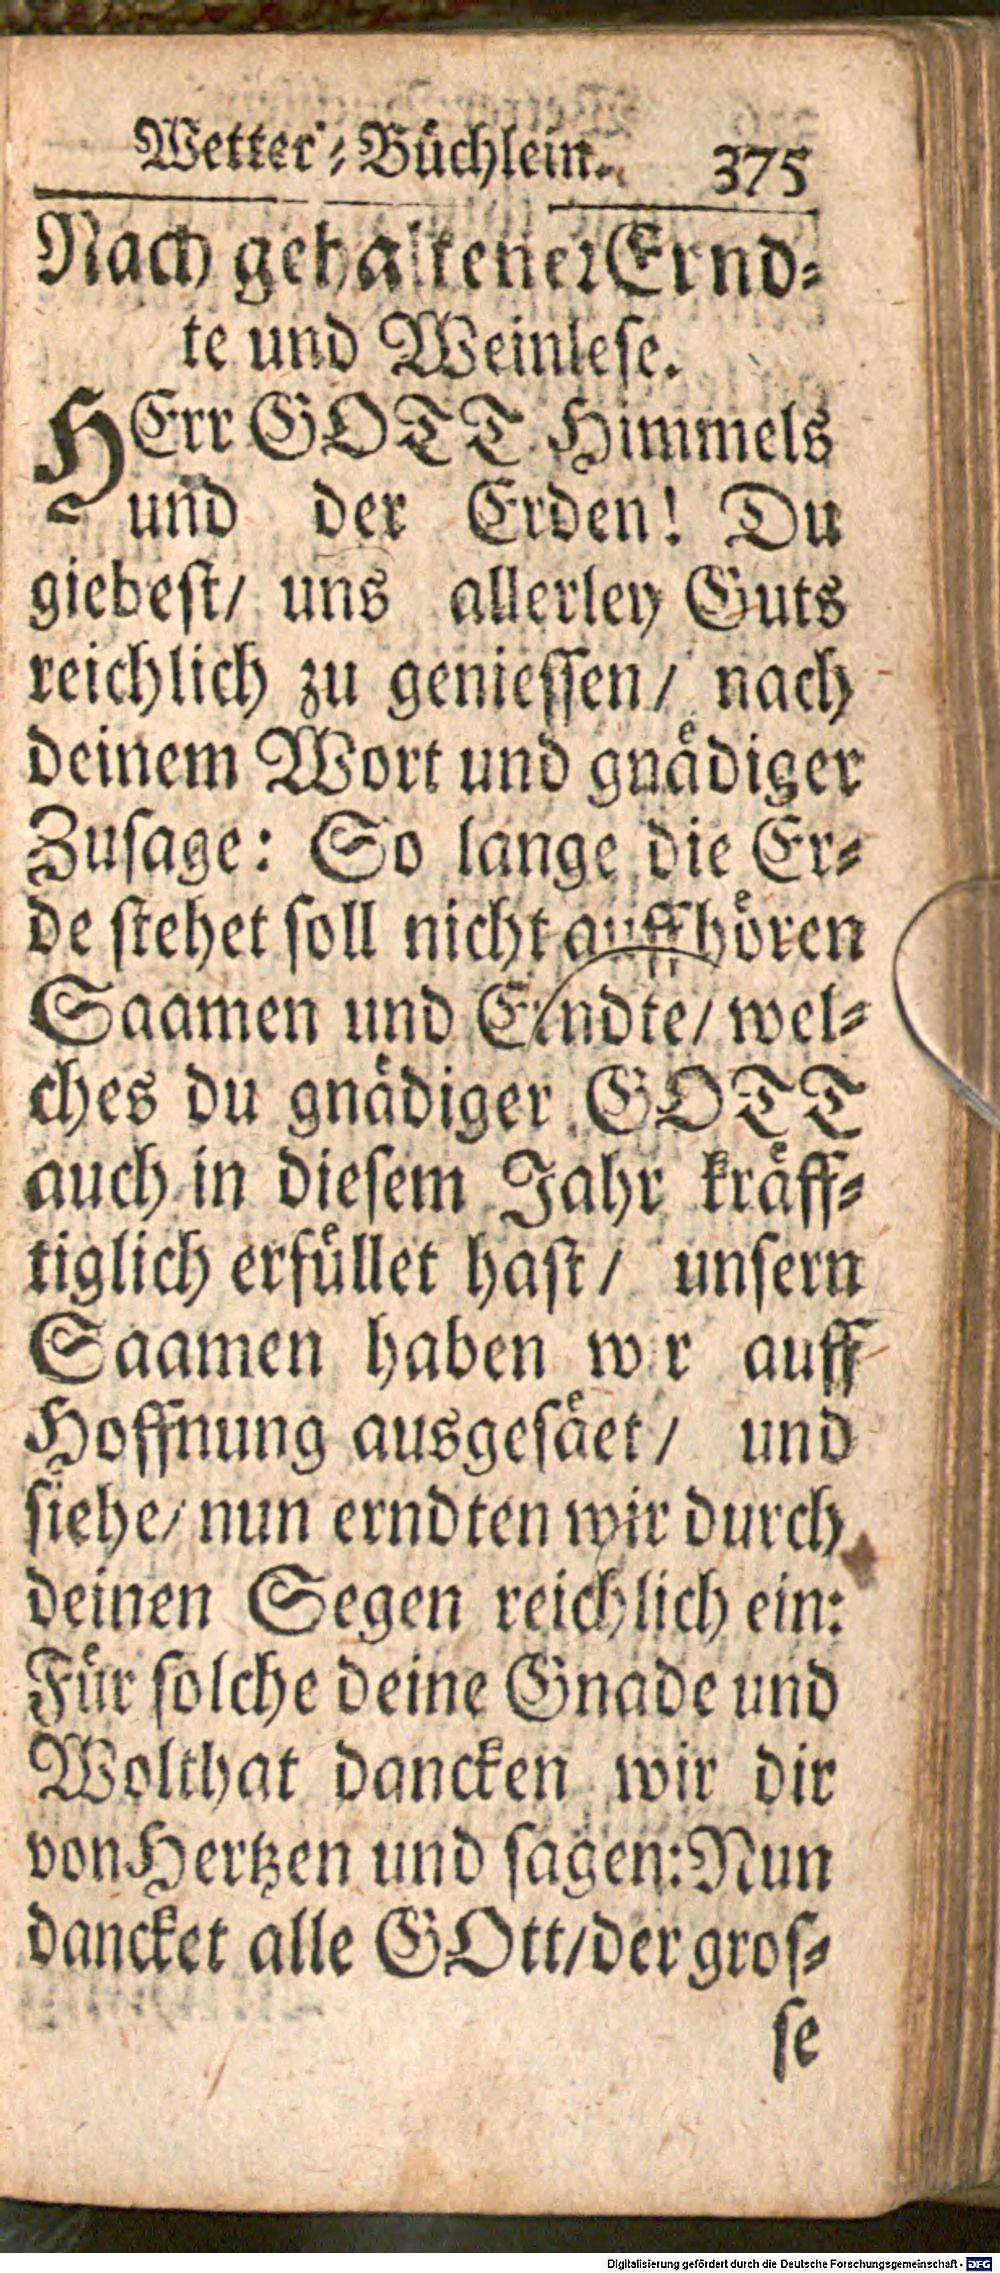 Wetter-Büchlein. 375
Nach gehaltener Ernd-
te und Weinlese.
HErr GOTT Himmels
und der Erden! Du
giebest/ uns allerley Guts
reichlich zu geniessen/ nach
deinem Wort und gnädiger
Zusage: So lange die Er-
de stehet soll nicht auffhören
Saamen und Erndte/ wel-
ches du gnädiger GOTT
auch in diesem Jahr kräff-
tiglich erfüllet hast/ unsern
Saamen haben wir auff
Hoffnung ausgesäet/ und
siehe/ nun erndten wir durch
deinen Segen reichlich ein:
Für solche deine Gnade und
Wolthat dancken wir dir
von Hertzen und sagen: Nun
dancket alle GOtt/ der gros-
se
Digitalisierung gefördert durch die Deutsche Forschungsgemeinschaft - DFG